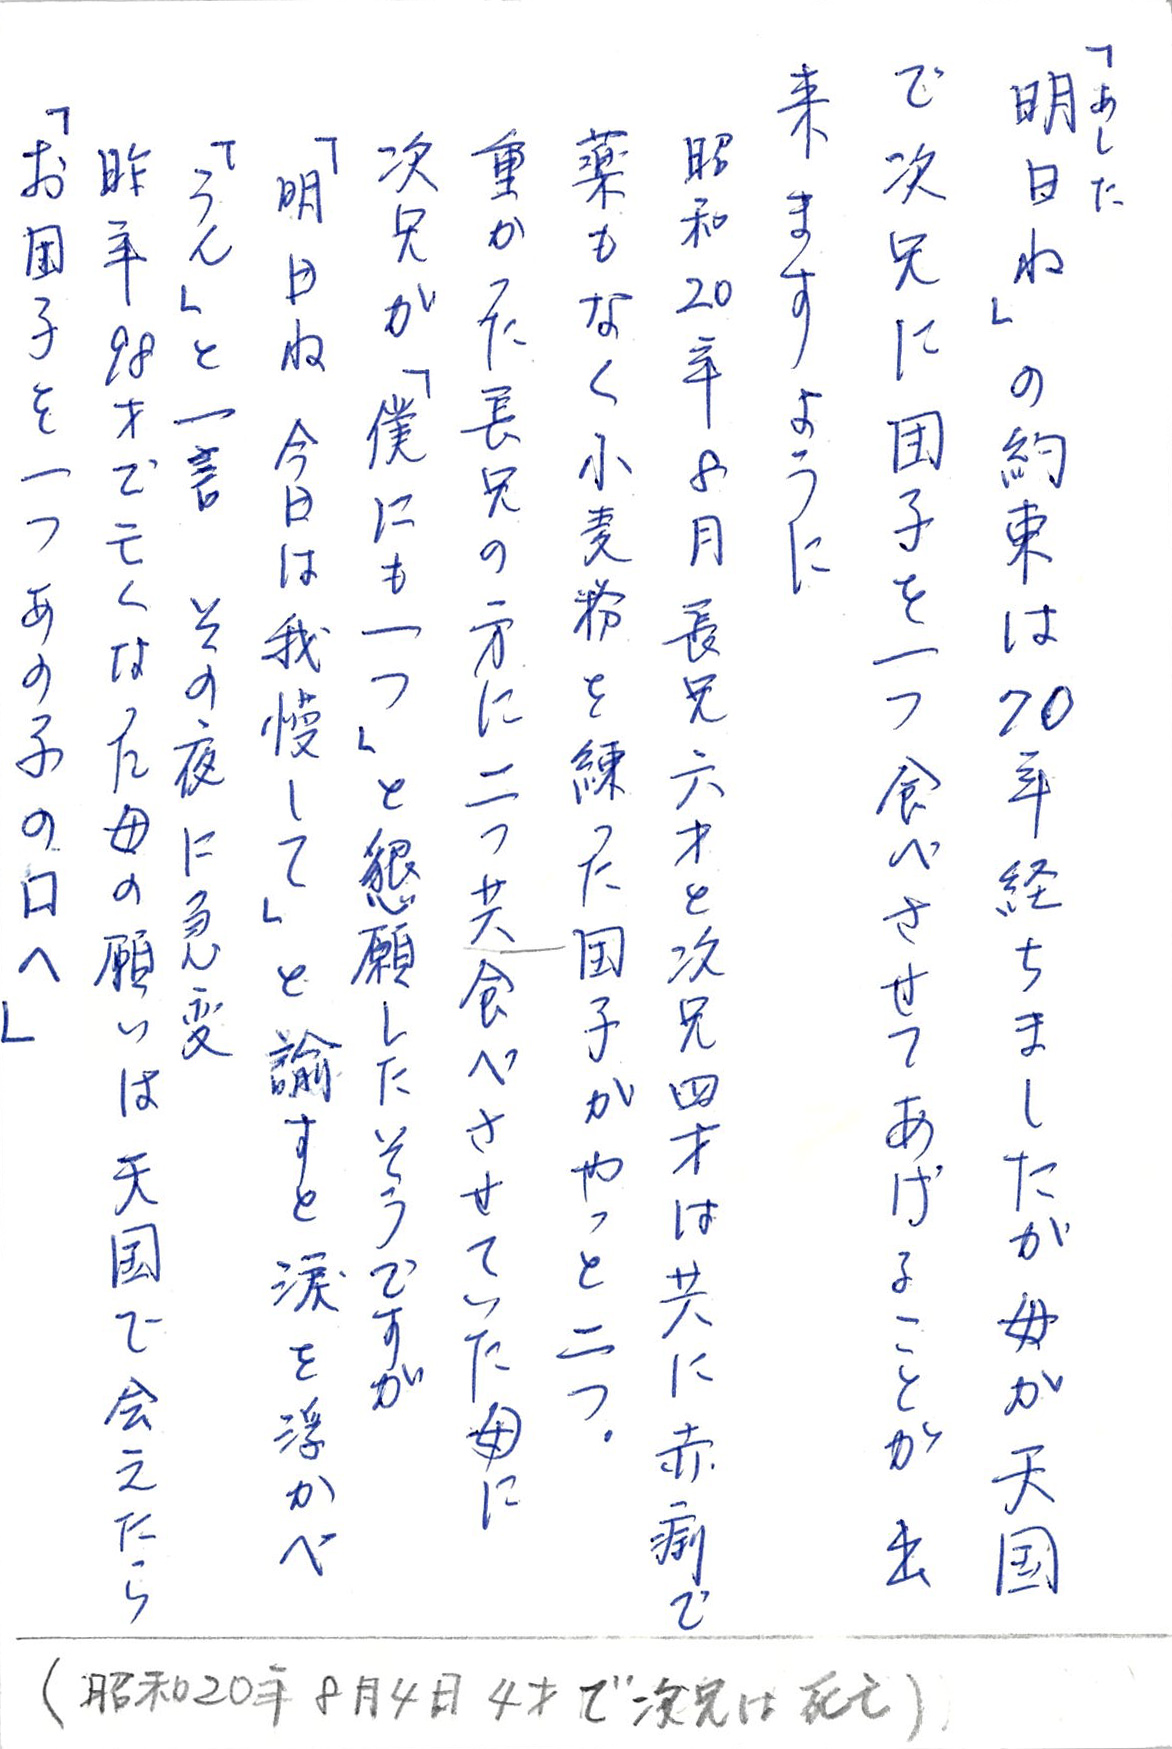 「明日ね」の約束は70年経ちましたが母が天国
あした
で次兄に団子を一つ食べさせてあげることが出
来ますように
昭和20年8月長兄六才と次兄四才は共に赤痢で
薬もなく小麦粉を練った団子がやっと二つ。
重かった長兄の方に二つ共食べさせていた母に
次兄が「僕にも一つ」と懇願したそうですが
「明日ね 今日は我慢して」と諭すと涙を浮かべ
「うん」と一言 その夜に急変
昨年98才で亡くなった母の願いは天国で会えたら
「お団子を一つあの子の口へ」
(昭和20年8月4日 4才で次兄は死亡)